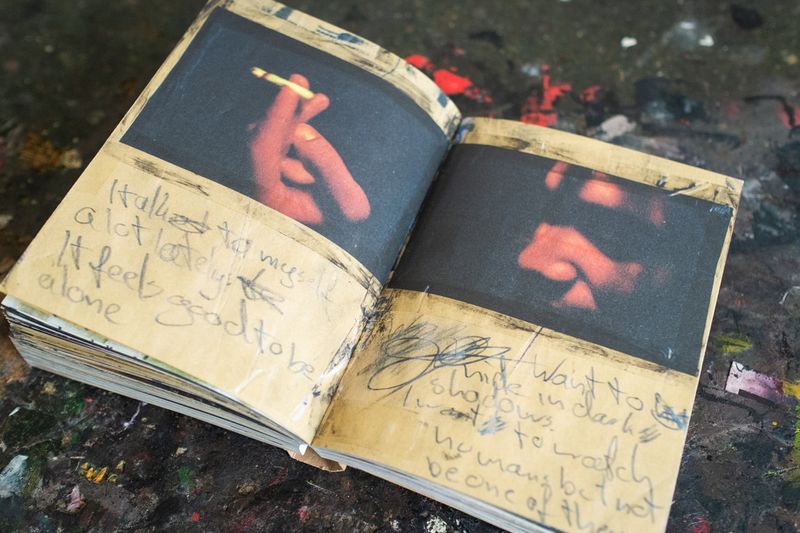 I talk to myself
a lot lately.
It feels good to be
alone
I want to
hide in dark
shadows.
I want to watch
humans but not
be one of them